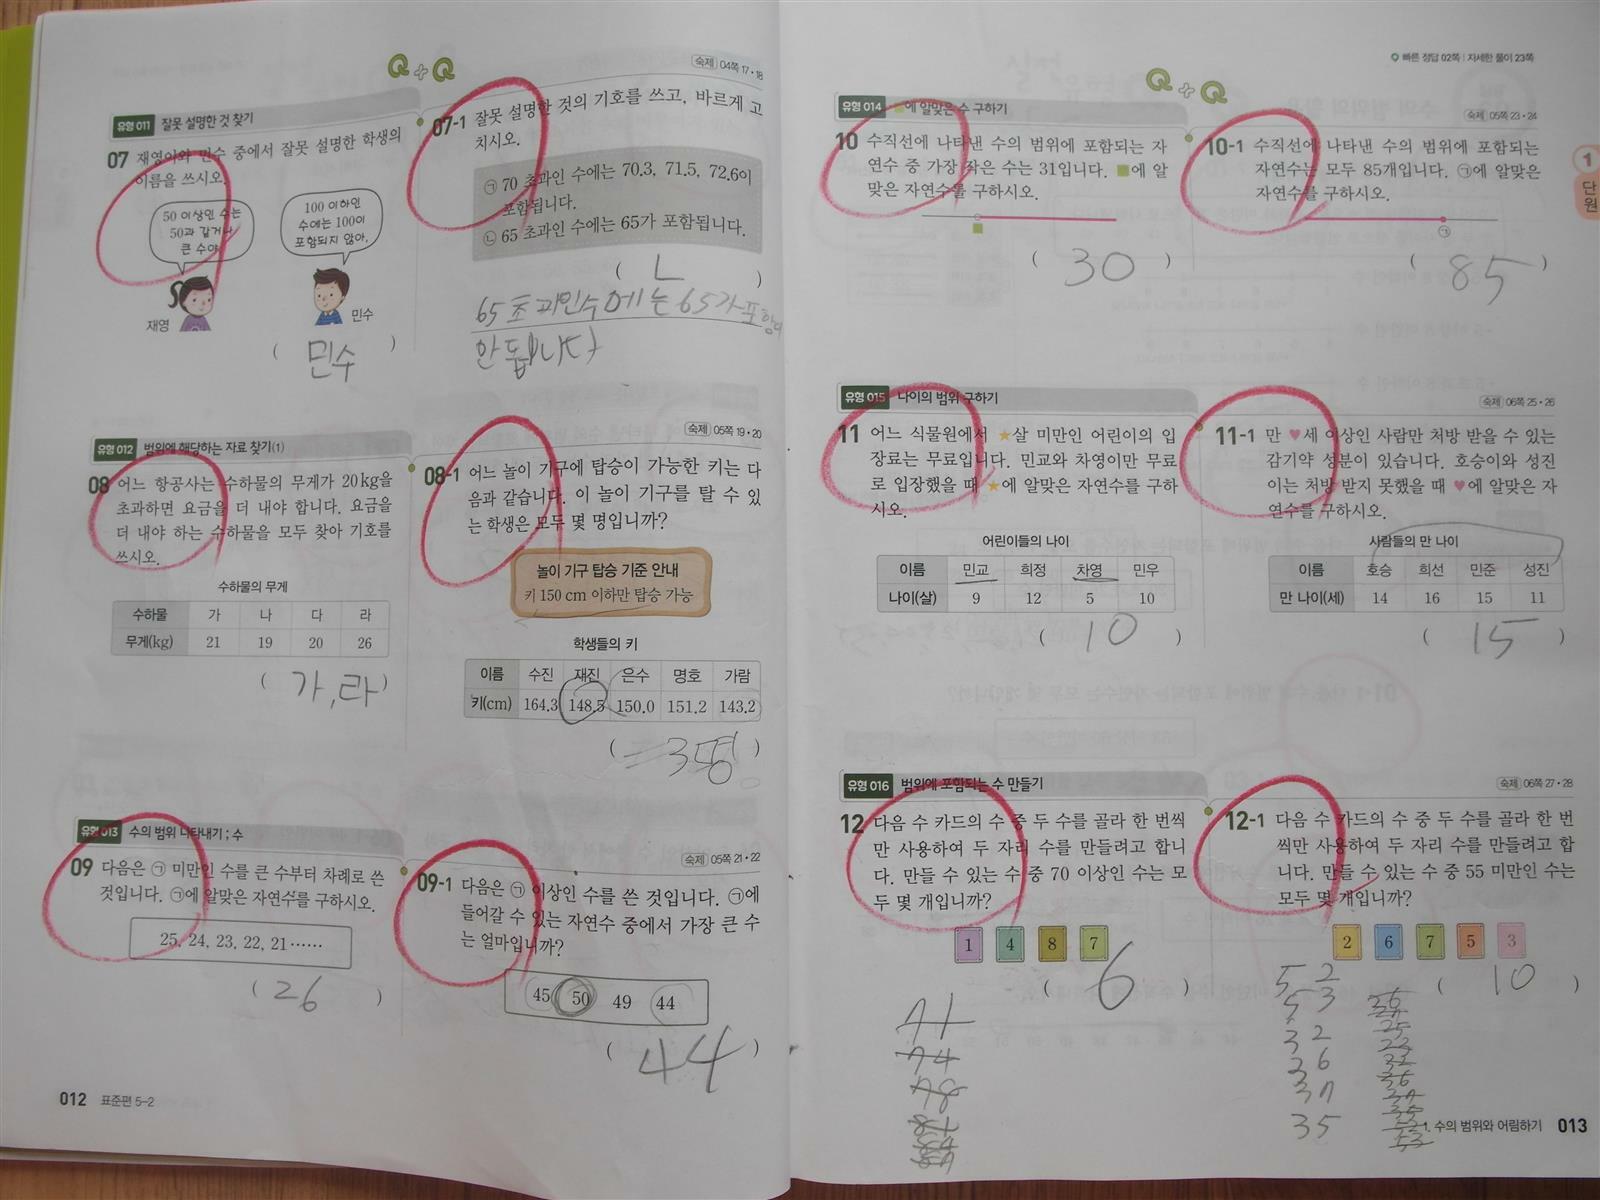 Q+Q
숙제 04쪽 17·18
유형 011 잘못 설명한 것 찾기
07 재영이와 민수 중에서 잘못 설명한 학생의
이름을 쓰시오.
50 이상인 수는
50과 같거나
큰 수야.
100 이하인
수에는 100이
포함되지 않아.
재영
민수
( 민수 )
07-1 잘못 설명한 것의 기호를 쓰고, 바르게 고
치시오.
㉠ 70 초과인 수에는 70.3, 71.5, 72.6이
포함됩니다.
㉡ 65 초과인 수에는 65가 포함됩니다.
( ㄴ )
65 초과인수에는 65가 포함
안됩니다
유형 012 범위에 해당하는 자료 찾기(1)
숙제 05쪽 19·20
08 어느 항공사는 수하물의 무게가 20 kg을
초과하면 요금을 더 내야 합니다. 요금을
더 내야 하는 수하물을 모두 찾아 기호를
쓰시오.
수하물의 무게
수하물 가 나 다 라
무게(kg) 21 19 20 26
( 가, 라 )
08-1 어느 놀이 기구에 탑승이 가능한 키는 다
음과 같습니다. 이 놀이 기구를 탈 수 있
는 학생은 모두 몇 명입니까?
놀이 기구 탑승 기준 안내
키 150 cm 이하만 탑승 가능
학생들의 키
이름 수진 재진 은수 명호 가람
키(cm) 164.3 148.5 150.0 151.2 143.2
( 3명 )
유형 013 수의 범위 나타내기 ; 수
숙제 05쪽 21·22
09 다음은 ㉠ 미만인 수를 큰 수부터 차례로 쓴
것입니다. ㉠에 알맞은 자연수를 구하시오.
25, 24, 23, 22, 21……
( 26 )
09-1 다음은 ㉠ 이상인 수를 쓴 것입니다. ㉠에
들어갈 수 있는 자연수 중에서 가장 큰 수
는 얼마입니까?
45 50 49 44
( 44 )
012 표준편 5-2
빠른 정답 02쪽 | 자세한 풀이 23쪽
Q+Q
1
단원
유형 014 ■에 알맞은 수 구하기
숙제 05쪽 23·24
10 수직선에 나타낸 수의 범위에 포함되는 자
연수 중 가장 작은 수는 31입니다. ■에 알
맞은 자연수를 구하시오.
■
( 30 )
10-1 수직선에 나타낸 수의 범위에 포함되는
자연수는 모두 85개입니다. ㉠에 알맞은
자연수를 구하시오.
㉠
( 85 )
유형 015 나이의 범위 구하기
숙제 06쪽 25·26
11 어느 식물원에서 ★살 미만인 어린이의 입
장료는 무료입니다. 민교와 차영이만 무료
로 입장했을 때 ★에 알맞은 자연수를 구하
시오.
어린이들의 나이
이름 민교 희정 차영 민우
나이(살) 9 12 5 10
( 10 )
11-1 만 ♥세 이상인 사람만 처방 받을 수 있는
감기약 성분이 있습니다. 호승이와 성진
이는 처방 받지 못했을 때 ♥에 알맞은 자
연수를 구하시오.
사람들의 만 나이
이름 호승 희선 민준 성진
만 나이(세) 14 16 15 11
( 15 )
유형 016 범위에 포함되는 수 만들기
숙제 06쪽 27·28
12 다음 수 카드의 수 중 두 수를 골라 한 번씩
만 사용하여 두 자리 수를 만들려고 합니
다. 만들 수 있는 수 중 70 이상인 수는 모
두 몇 개입니까?
1 4 8 7
( 6 )
71
74
78
81
84
87
12-1 다음 수 카드의 수 중 두 수를 골라 한 번
씩만 사용하여 두 자리 수를 만들려고 합
니다. 만들 수 있는 수 중 55 미만인 수는
모두 몇 개입니까?
2 6 7 5 3
( 10 )
52
53
32
36
37
35
1. 수의 범위와 어림하기 013